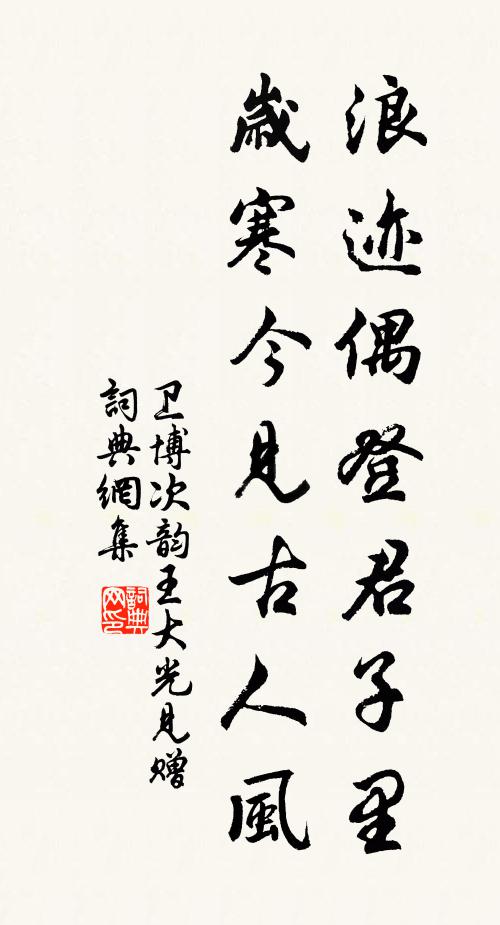 浪迹偶登君子里
歲寒今見古人風
卫博次韵王大光見赠
詞典網集
詞典网印